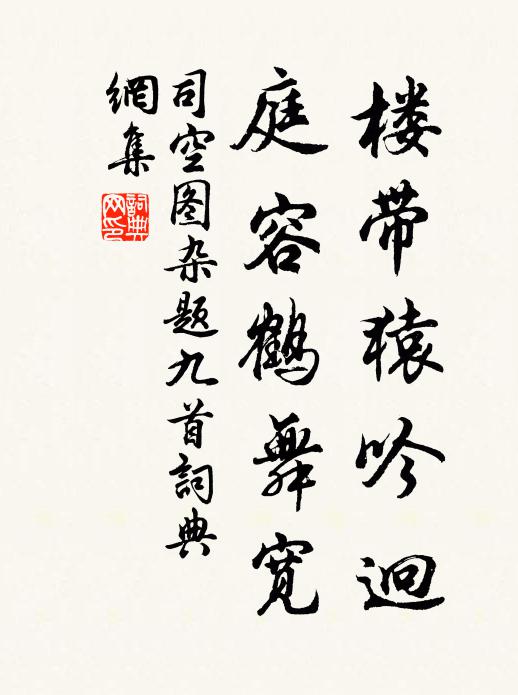 楼带猿吟迥
庭容鹤舞宽
司空图杂题九首詞典
網集
詞典
网印